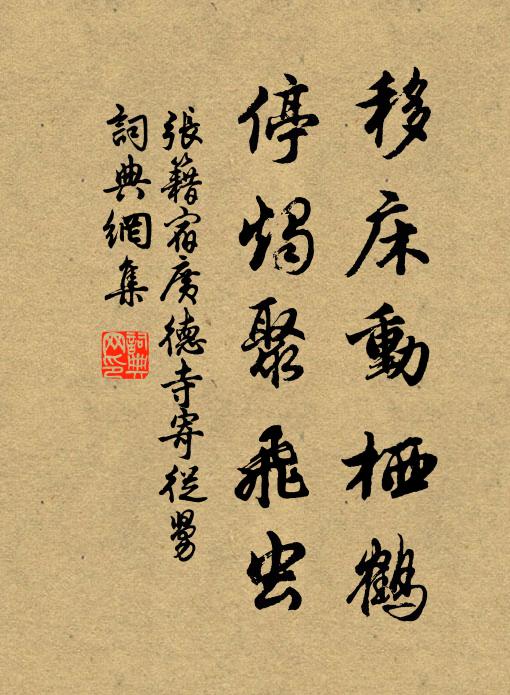 移床動栖鶴
停燭聚飛虫
張籍宿廣德寺寄從舅
詞典網集
詞典網印